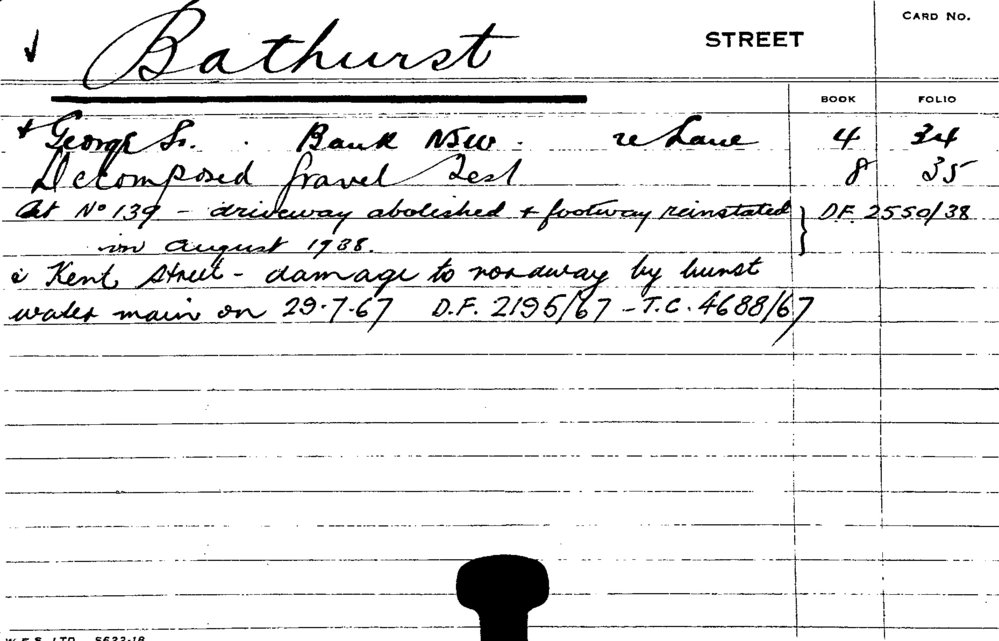 CARD No.
Bathurst STREET
BOOK FOLIO
+ George St. Bank NSW. re Lane 4 34
Decomposed Gravel Test 8 35
At No 139 - driveway abolished + footway reinstated } D.F. 2550/38
in August 1938.
& Kent Street - damage to roadway by burst
water main on 29.7.67 D.F. 2195/67 - T.C. 4688/67
W.E.S. LTD. 5622-18